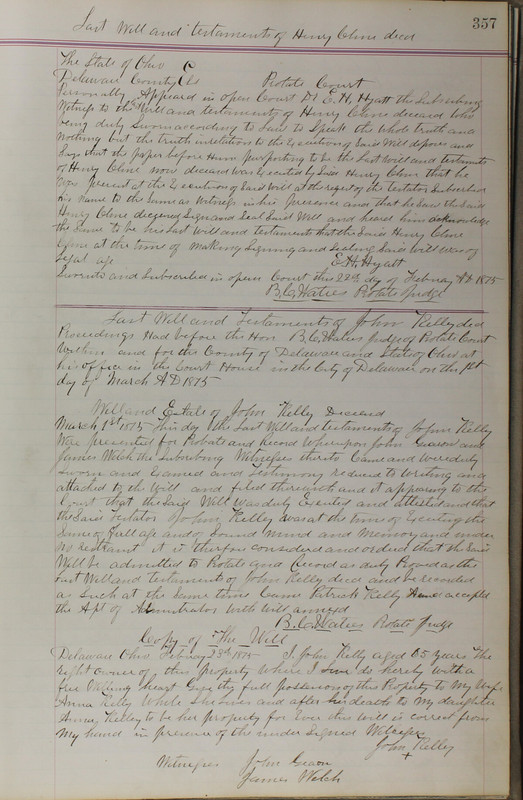 357
Last Will and testaments of Henry Cline decd
The State of Ohio
Delaware County ss Probate Court
Personally Appeared in open Court Dr E. H. Hyatt the Subscribing
Witness to the Will and testaments of Henry Cline deceased who
being duly Sworn according to Law to Speak the whole truth and
nothing but the truth in relation to the Execution of Said Will deposes and
Says that the paper before Him purporting to be the Last Will and testiments
of Henry Cline now deceased was Executed by Said Henry Cline that he
Was present at the Execution of Said Will at the request of the testator Subscribed
His Name to the Same as Witness in his presence and that he Saw the Said
Henry Cline deceased Sign and Seal Said Will and heard him acknowledge
the Same to be his Last Will and testaments that the Said Henry Cline
at the time of making Signing and Sealing Said Will was of
Legal age E. H. Hyatt
Sworn to and Subscribed in open Court this 22d day of Februay AD 1875
B. C. Waters Probate Judge
Last Will and Testaments of John Kelly decd
Proceedings Had before the Hon B. C. Waters Judge of Probate Court
Within and for the County of Delaware and State of Ohio at
his office in the Court House in the City of Delaware on the 1st
day of March AD 1875
Will and Estate of John Kelly Deceased
March 1st 1875 This day the Last Will and testaments of John Kelly
Were presented for Probate and Record Whereupon John and
James Welch the Subscribing Witnesses thereto Came and were duly
Sworn and Examined and Testimony reduced to Writing and
attached to the Will and filed therewith and it appearing to the
Court that the Said Will was duly Executed and Attested and that
the Said testator John Kelly was at the time of Executing the
Same of full age and of Sound Mind and Memory and under
no restraint it is therefore considered and ordered that the Said
Will be admitted to Probate and Record as duly Proved as the
Last Will and testaments of John Kelly decd and be recorded
as Such at the Same time Came Patrick Kelly and accepted
the Apt of Admnstrator with will annexed
B. C. Waters Probate Judge
Copy of The Will
Delaware Ohio Februay 1875 I John Kelly aged 65 years The
Right owner of this property Where I live do hereby with a
free Willing heart Give the full possession of this Property to My Wife
Anna Kelly While She lives and after her death to My daughter
Anna Kelly to be her property for Ever this will is correct from
My hand in presence of the under Signed Witnesses
John + Kelly
Witnesses John
James Welch